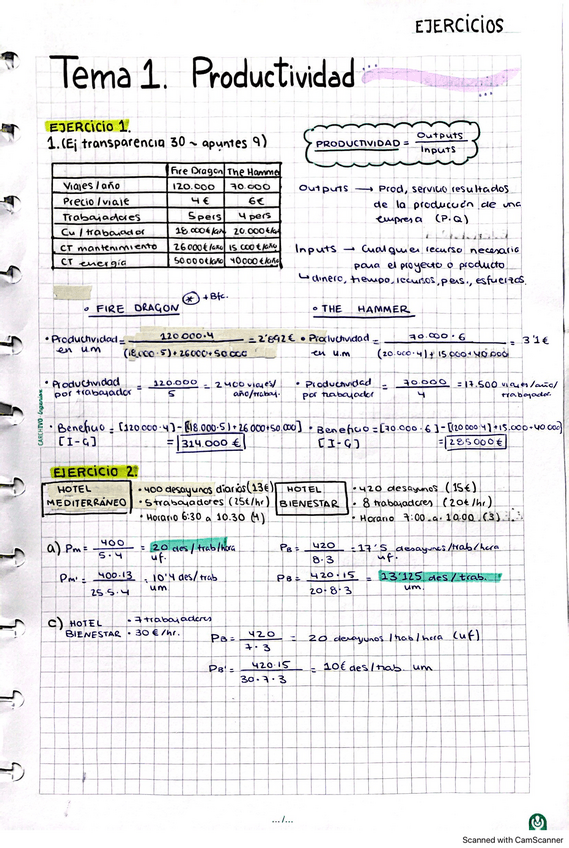 EJERCICIOS
Tema 1. Productividad
EJERCICIO 1.
1. (Ej transparencia 30 ~ apuntes 9)
PRODUCTIVIDAD = Outputs / Inputs
Fire Dragon The Hamme
Viajes / año 120.000 70.000
Precio / viaje 4€ 6€
Trabajadores 5 pers 4 pers
Cu / trabajador 18.000€/año 20.000€/año
CT mantenimiento 26000€/año 15000€/año
CT energía 50000€/año 40000€/año
Outputs → Prod, servicio resultados
de la producción de una
empresa (P·Q)
Inputs → Cualquier recurso necesario
para el proyecto o producto
↳ dinero, tiempo, recursos, pers., esfuerzos.
• FIRE DRAGON * + Bfc.
• THE HAMMER
• Productividad en u.m = 120.000·4 / (18.000·5)+26000+50.000 = 2'892€
• Productividad en u.m = 70.000·6 / (20.000·4)+15.000+40.000 = 3'1€
• Productividad por trabajador = 120.000 / 5 = 2400 viajes/año/trabaj.
• Productividad por trabajador = 70000 / 4 = 17.500 viajes/año/trabajador
• Beneficio = [120000·4]-[(18.000·5)+26000+50,000]
[I-G] = 314.000€
• Beneficio = [70.000·6]-[(20000·4)+15.000+40000]
[I-G] = 285000€
EJERCICIO 2.
HOTEL MEDITERRÁNEO
• 400 desayunos diarios (13€)
• 5 trabajadores (25€/hr)
• Horario 6:30 a 10.30 (4)
HOTEL BIENESTAR
• 420 desayunos (15€)
• 8 trabajadores (20€/hr)
• Horario 7:00 a 10:00 (3)
a) Pm = 400 / 5·4 = 20 des/trab/hora uf.
PB = 420 / 8·3 = 17'5 desayunos/trab/hora uf.
Pm' = 400·13 / 25·5·4 = 10'4 des/trab um
PB = 420·15 / 20·8·3 = 13'125 des/trab. um.
c) HOTEL BIENESTAR
• 7 trabajadores
• 30€/hr.
PB = 420 / 7·3 = 20 desayunos/trab/hora (uf)
PB' = 420·15 / 30·7·3 = 10€ des/trab. um
.../...
Scanned with CamScanner